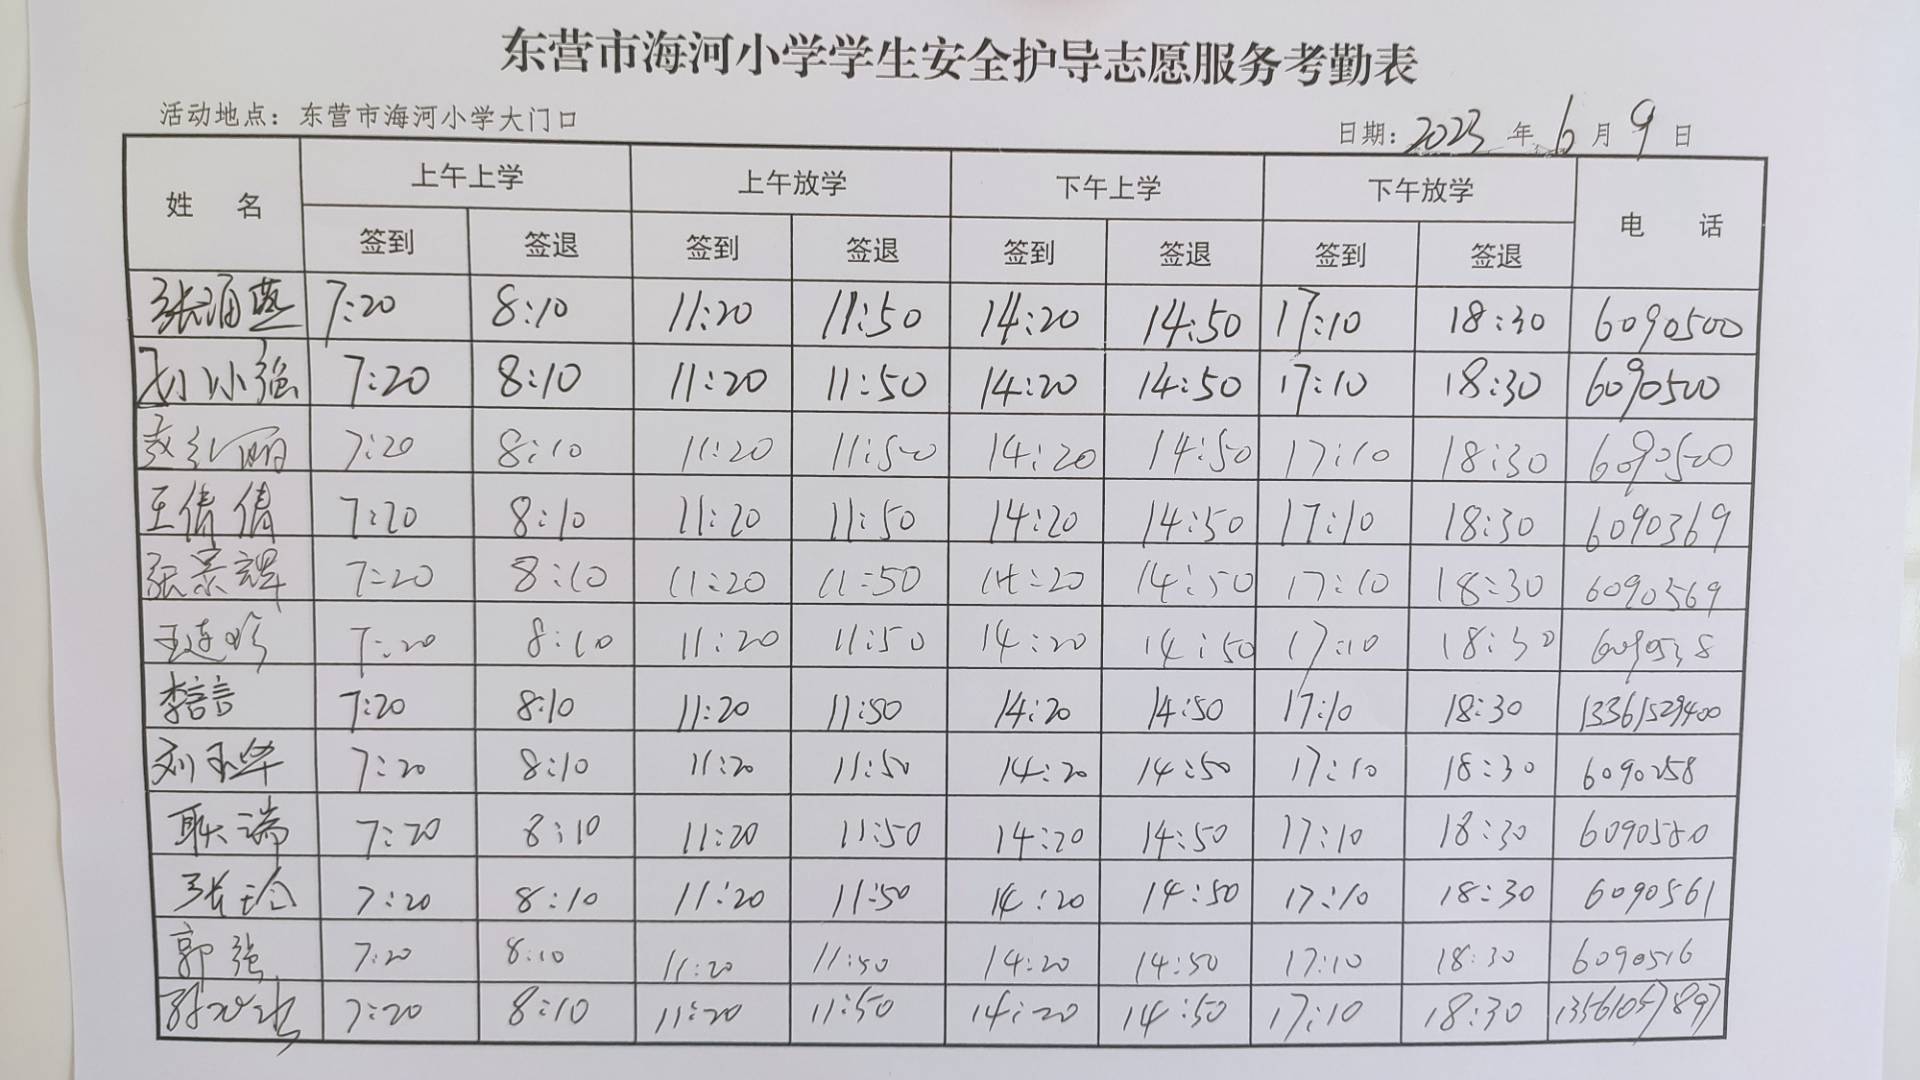 东营市海河小学学生安全护导志愿服务考勤表
活动地点：东营市海河小学大门口
日期：2023年6月9日
姓 名 上午上学 上午放学 下午上学 下午放学 电 话
签到 签退 签到 签退 签到 签退 签到 签退
张涌燕 7:20 8:10 11:20 11:50 14:20 14:50 17:10 18:30 6090500
刘小强 7:20 8:10 11:20 11:50 14:20 14:50 17:10 18:30 6090500
7:20 8:10 11:20 11:50 14:20 14:50 17:10 18:30 6090500
王倩倩 7:20 8:10 11:20 11:50 14:20 14:50 17:10 18:30 6090369
张景辉 7:20 8:10 11:20 11:50 14:20 14:50 17:10 18:30 6090569
王连珍 7:20 8:10 11:20 11:50 14:20 14:50 17:10 18:30 6090538
李言言 7:20 8:10 11:20 11:50 14:20 14:50 17:10 18:30 13361529400
刘玉华 7:20 8:10 11:20 11:50 14:20 14:50 17:10 18:30 6090258
耿端 7:20 8:10 11:20 11:50 14:20 14:50 17:10 18:30 6090580
张玲 7:20 8:10 11:20 11:50 14:20 14:50 17:10 18:30 6090561
郭强 7:20 8:10 11:20 11:50 14:20 14:50 17:10 18:30 6090516
7:20 8:10 11:20 11:50 14:20 14:50 17:10 18:30